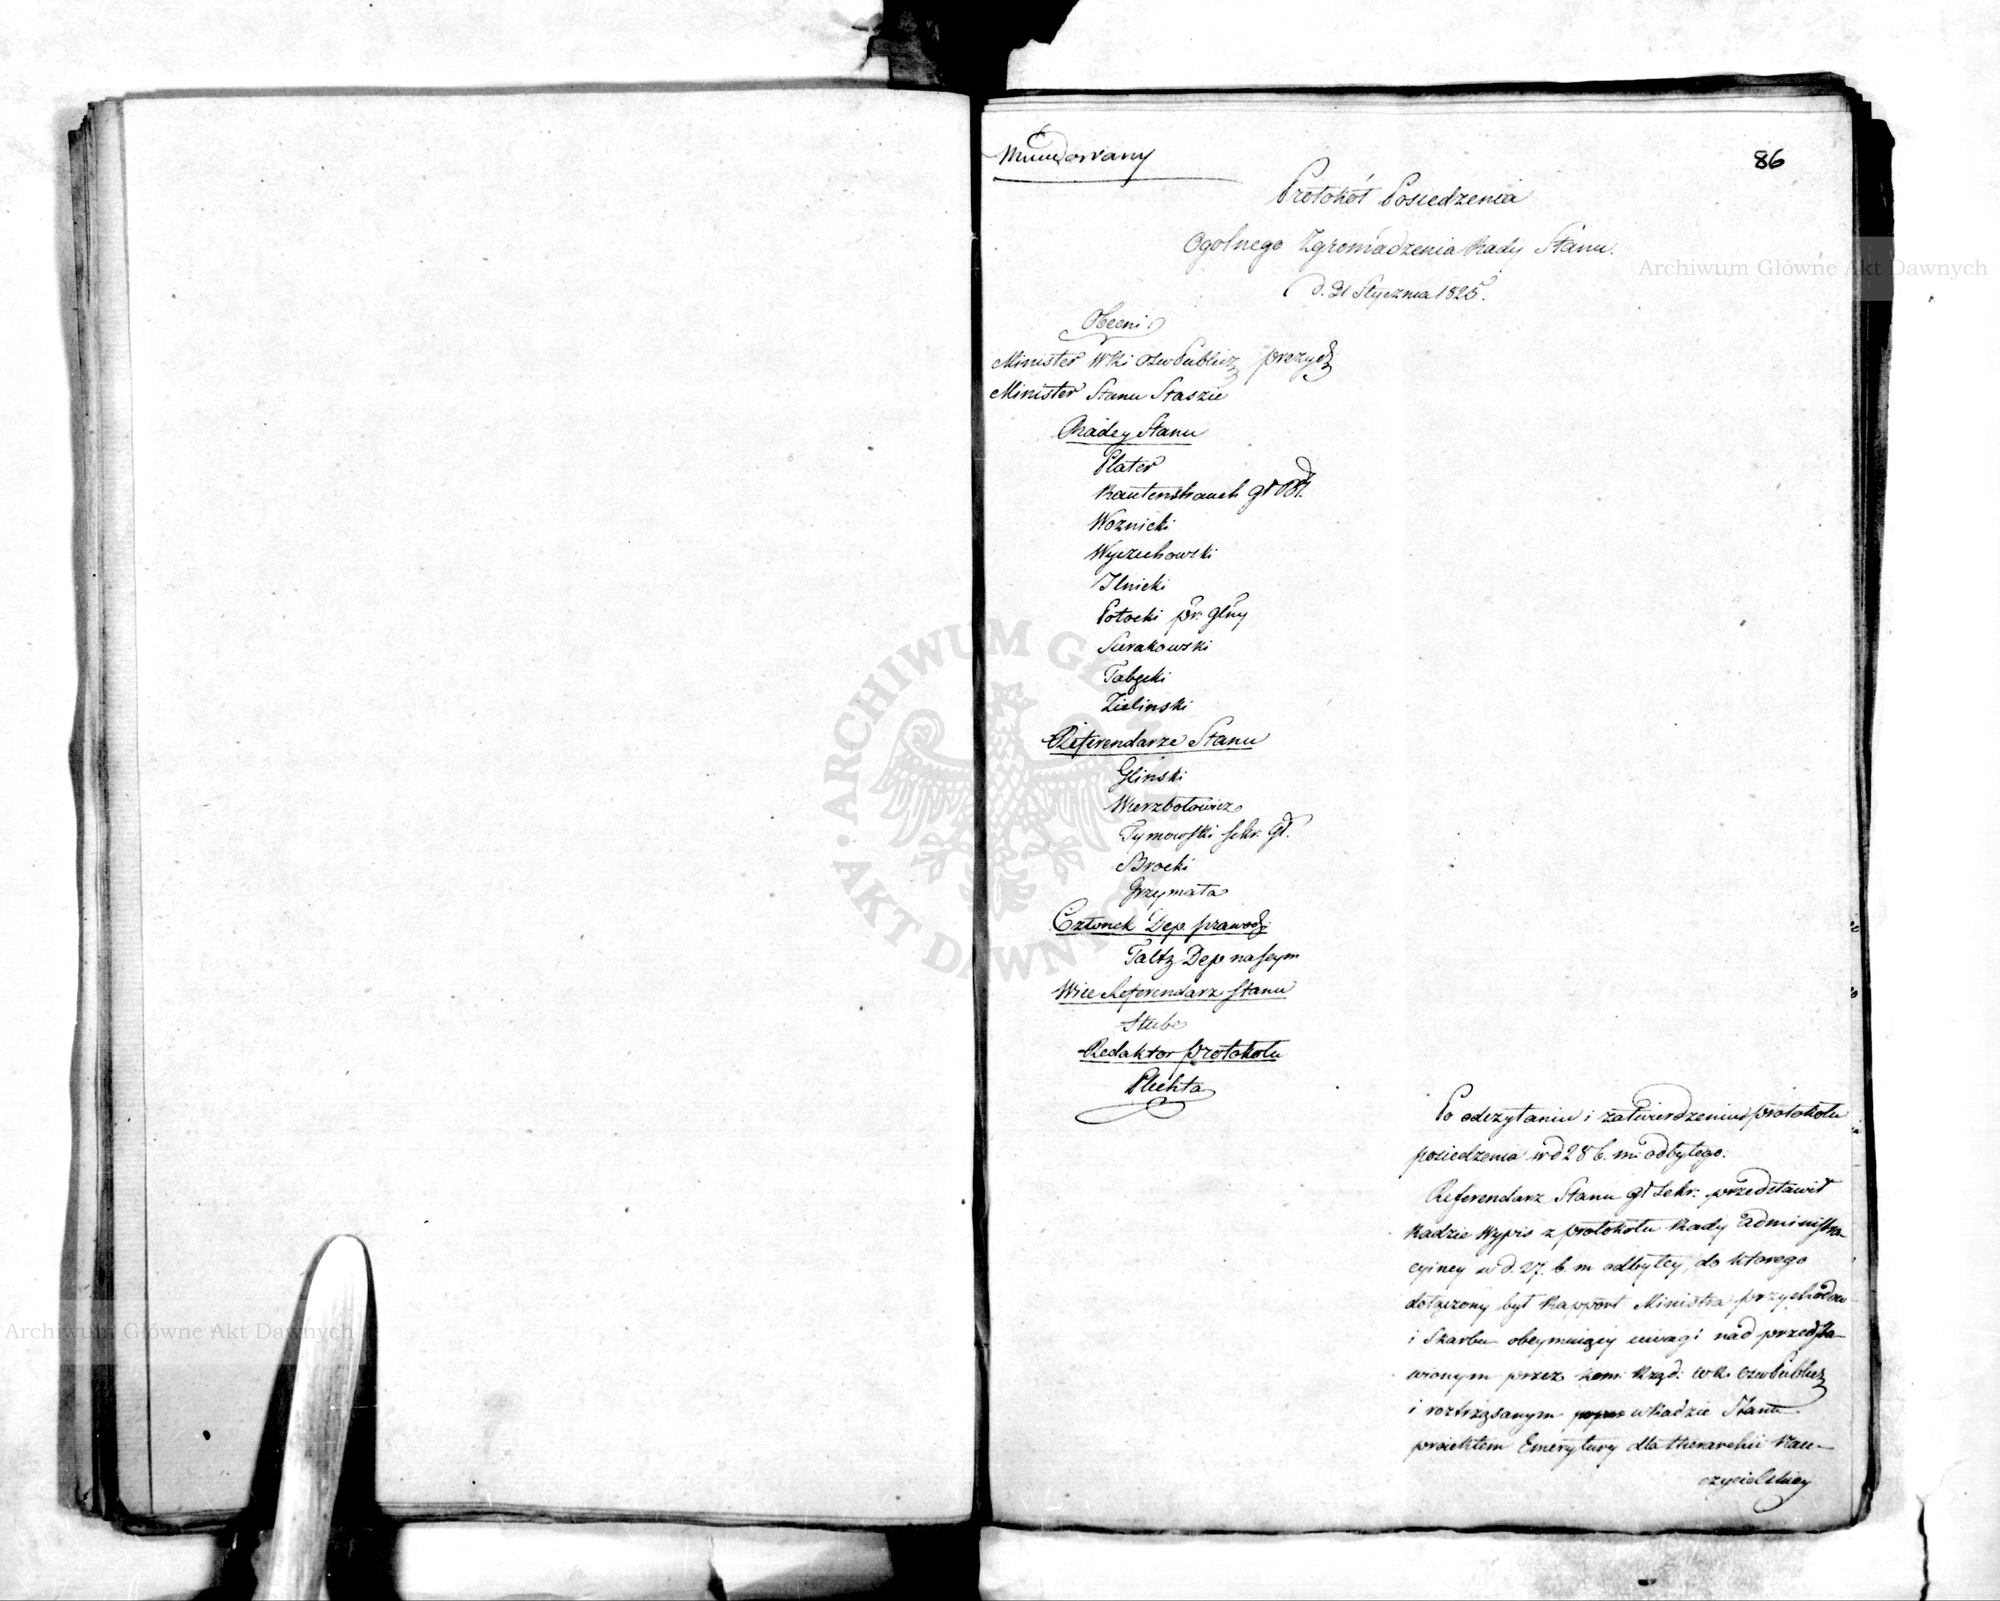 Mundowany
86
Protokół Posiedzenia
Ogolnego Zgromadzenia Rady Stanu.
d. 31 Stycznia 1825.
Obecni
Minister WRi OświPublicz prezyd
Minister Stanu Staszic
Radcy Stanu
Plater
Rautenstrauch
Woznicki
Wyczechowski
Ilnicki
Potocki pr. glny
Sierakowski
Tabęcki
Zielinski
Referendarze Stanu
Gliński
Wierzbołowicz
Tymowski sekr. gł.
Brocki
Grzymała
Członek Dep. prawod
Faltz Dep na seym
Wice Referendarz Stanu
Stube
Redaktor protokołu
Plichta
Po odczytaniu i zatwierdzeniu protokołu
posiedzenia w d 28 b. m. odbytego.
Referendarz Stanu gł Sekr. przedstawił
Radzie Wypis z protokołu Rady Administra-
cyiney w d. 27. b. m odbytey, do ktorego
dołączony był Rapport Ministra przychodow
i Skarbu obeymuiący uwagi nad przedsta-
wionym przez Kom: Rząd: W R. OświPublicz
i roztrząsanym w Radzie Stanu
proiektem Emerytury dla Hierarchii Nau-
czycielskiey
Archiwum Główne Akt Dawnych
Archiwum Główne Akt Dawnych